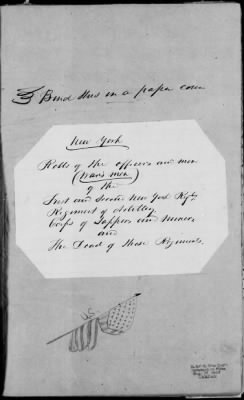 Bind this in a paper cover
New York
Rolls of the officers and men
(war men)
of the
First and Second New York Regts
Regiment of Artillery
Corps of Sappers and Miners
and
The Dead of these Regiments.